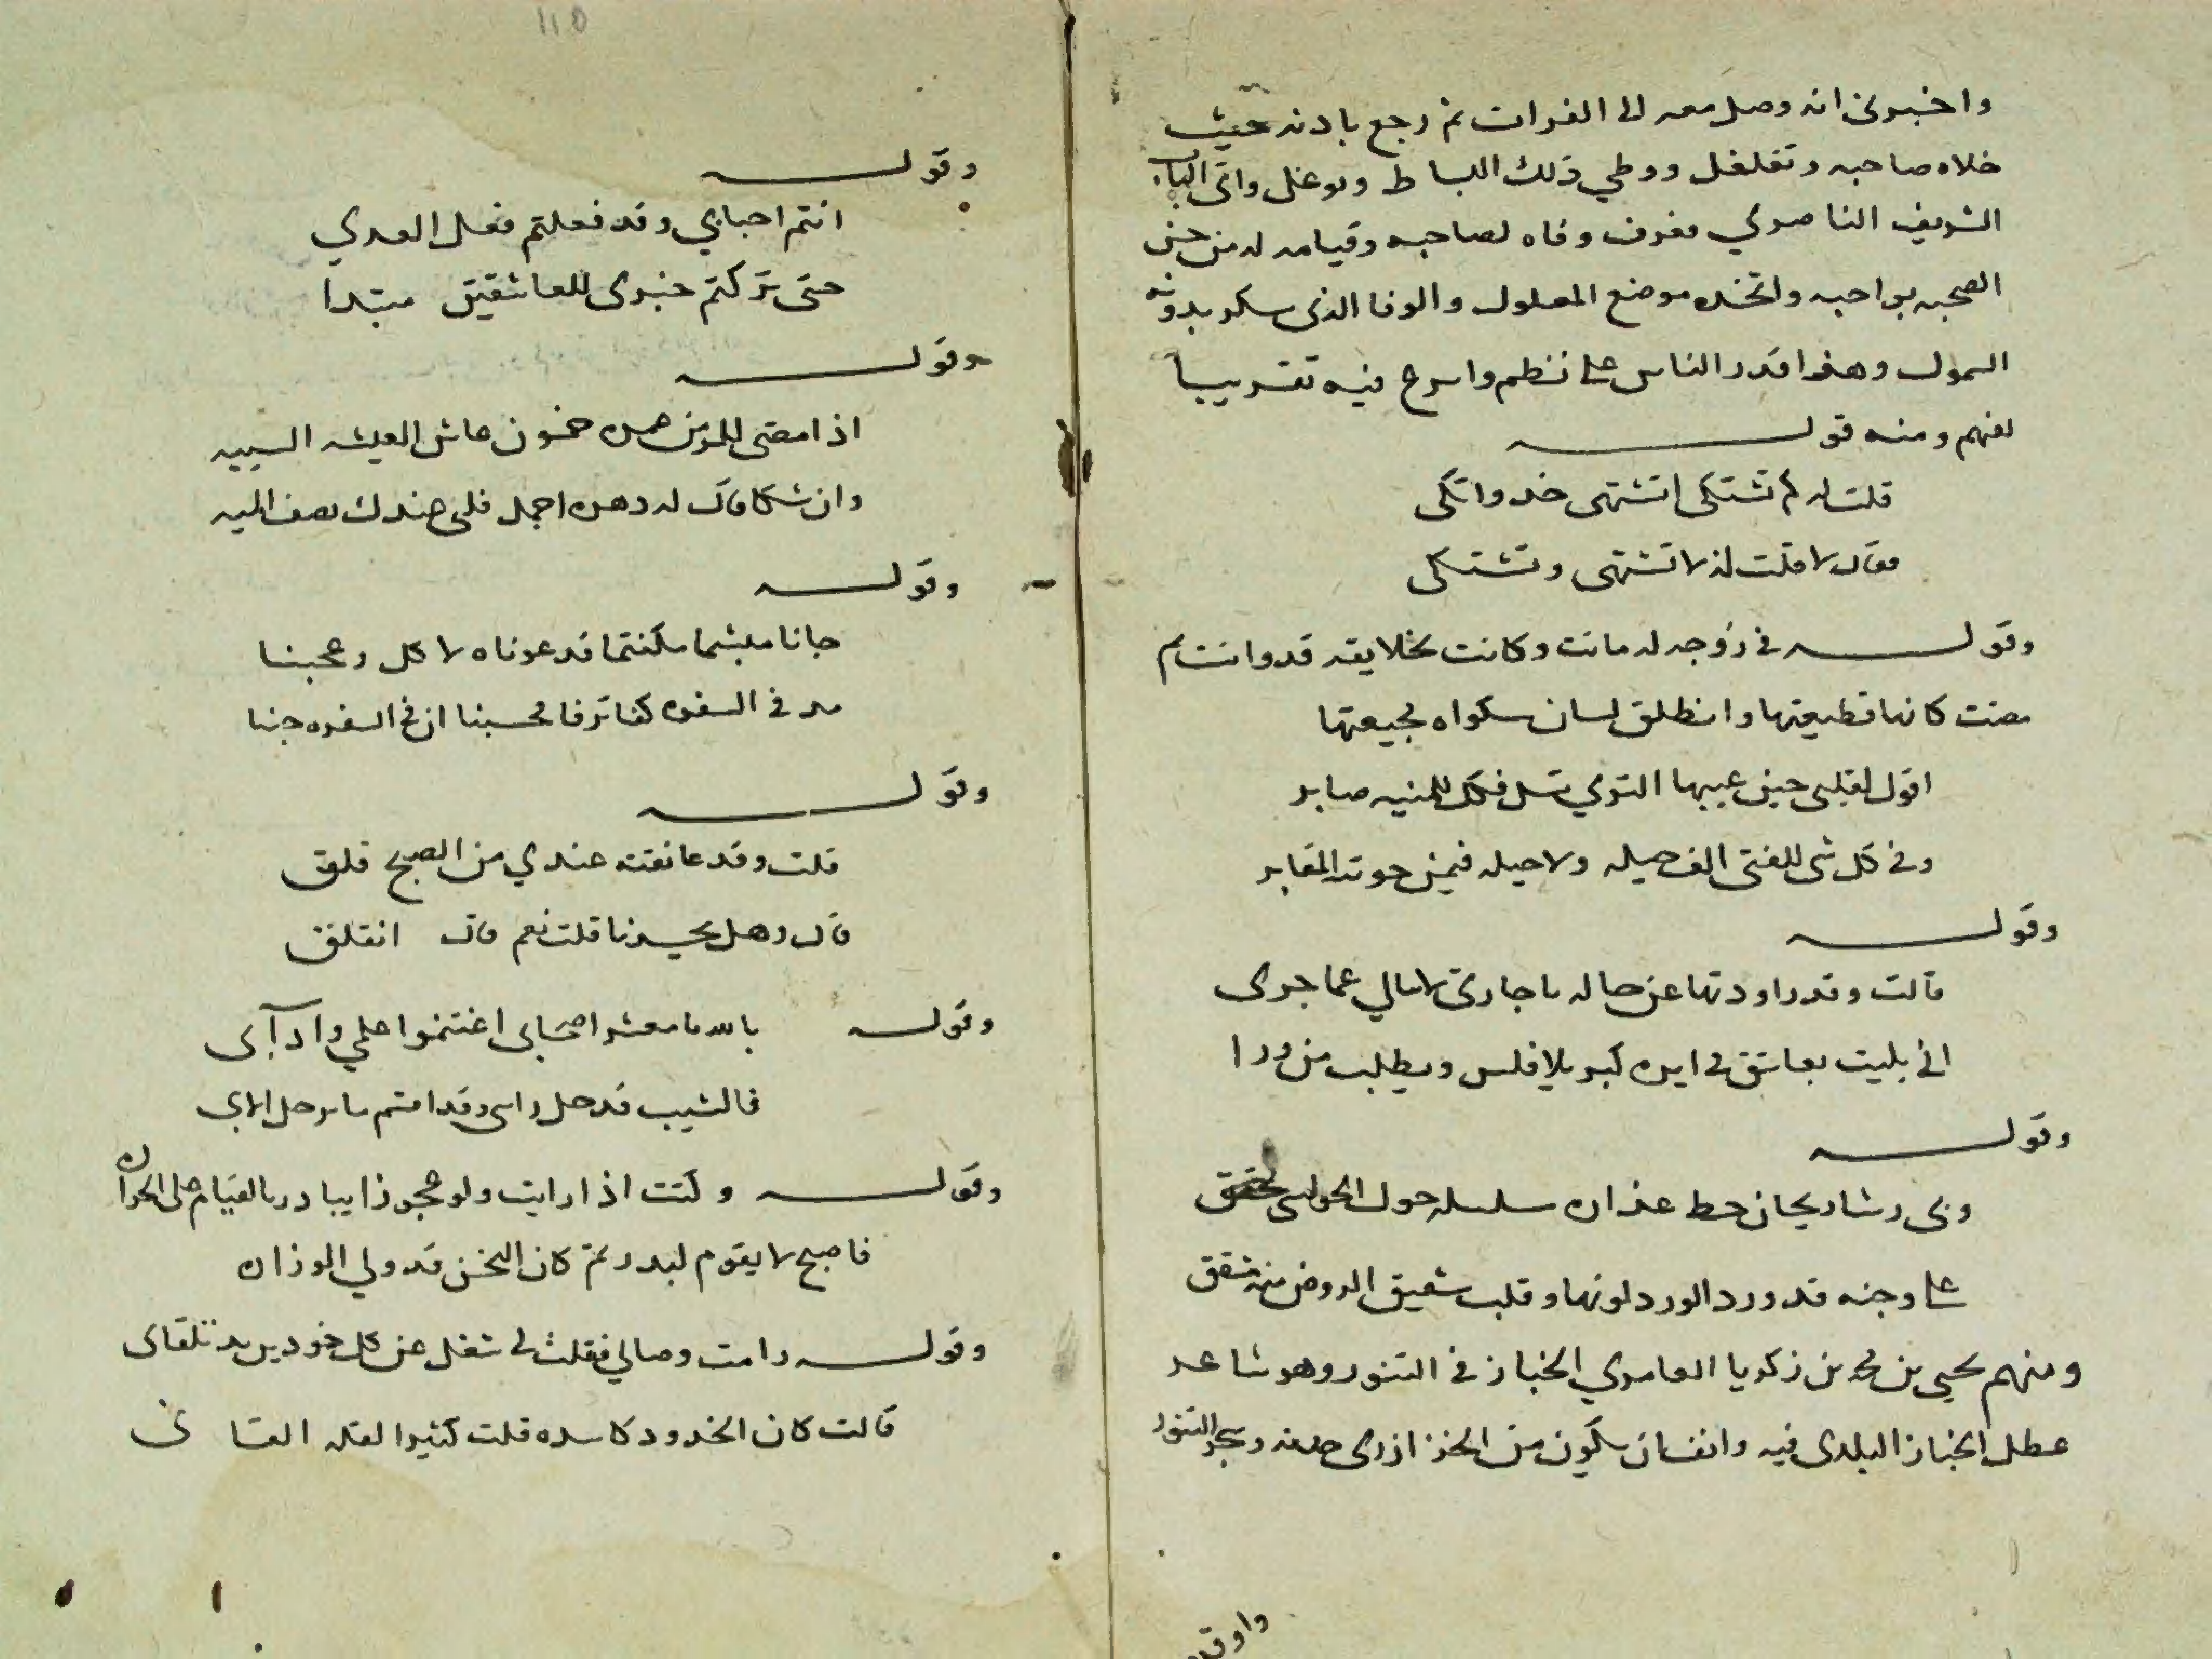 واخبرنى انه وصل معه الى الفرات ثم رجع باذنه حيث
خلاه صاحبه وتغلغل ووطي ذلك البساط وتوغل واتى الباب
الشريف الناصري فعرف وفاه لصاحبه وقيامه له من حسن
الصحبه بواجبه واتخذه موضع المعلول والوفا الذى سكر بدونه
السمول وهذا اقدر الناس على نظم واسرع فيه تقريبا
لفهم ومنه قوله
قلت له لم تشتكى اتشتهى خد واتكى
فقال لا قلت اذ لا تشتهى وتشتكى
وقوله فى زوجه له ماتت وكانت بخلايقه قد وانست ثم
مضت كانها قطيعتها وانطلق لسان سكواه لجيعتها
اقول لقلبى حين غيبها الثري تسل فكل للمنيه صابر
وفى كل شى للفتى الف حيله ولا حيله فيمن حوته المقابر
وقوله
قالت وقد راودتها عن حاله يا جارتى لا تسالي عما جرى
انى بليت بعاشق فى ايره كبر بلا فلس ويطلب من ورا
وقوله
وبى رشا ريحان خط عذاره سلسله حول الحواسى تحقق
على وجنه قد ورد الورد لونها وقلب شقيق الروض منه تشقق
ومنهم يحيى بن محمد بن زكريا العامري الخباز فى التنور وهو شاعر
عطل الخباز البلدى فيه وانفاسه تكون من الخز ازرى وبجر التنور
واوقد
110
وقوله
انتم احبابي وقد فعلتم فعل العدي
حتى تركتم خبرى للعاشقين مبتدا
وقوله
اذا مضى للمر من عمره خمسون عاش العيشه السييه
وان شكا قال له دهره اجمل فلى عندك نصف الميه
وقوله
جانا ملتثما مكتتما فدعوناه لاكل وعجبنا
مد فى السفره كفا ترفا فحسبنا ان فى السفره جبنا
وقوله
قلت وقد عانقته عندي من الصبح قلق
قال وهل يحسدنا قلت نعم قال انفلق
وقوله بالله يا معشر اصحابى اغتنموا علمي وادآبى
فالشيب قد حل براسى وقد اقسم ما يرحل الابى
وقوله وكنت اذا رايت ولو عجوزا يبادر بالقيام على الحراره
فاصبح لا يقوم لبدر تم كان النحس قد ولي الوزاره
وقوله رامت وصالي فقلت لى شغل عن كل خود يريد تلقانى
قالت كان الخدود كاسده قلت كثيرا لقله القانى